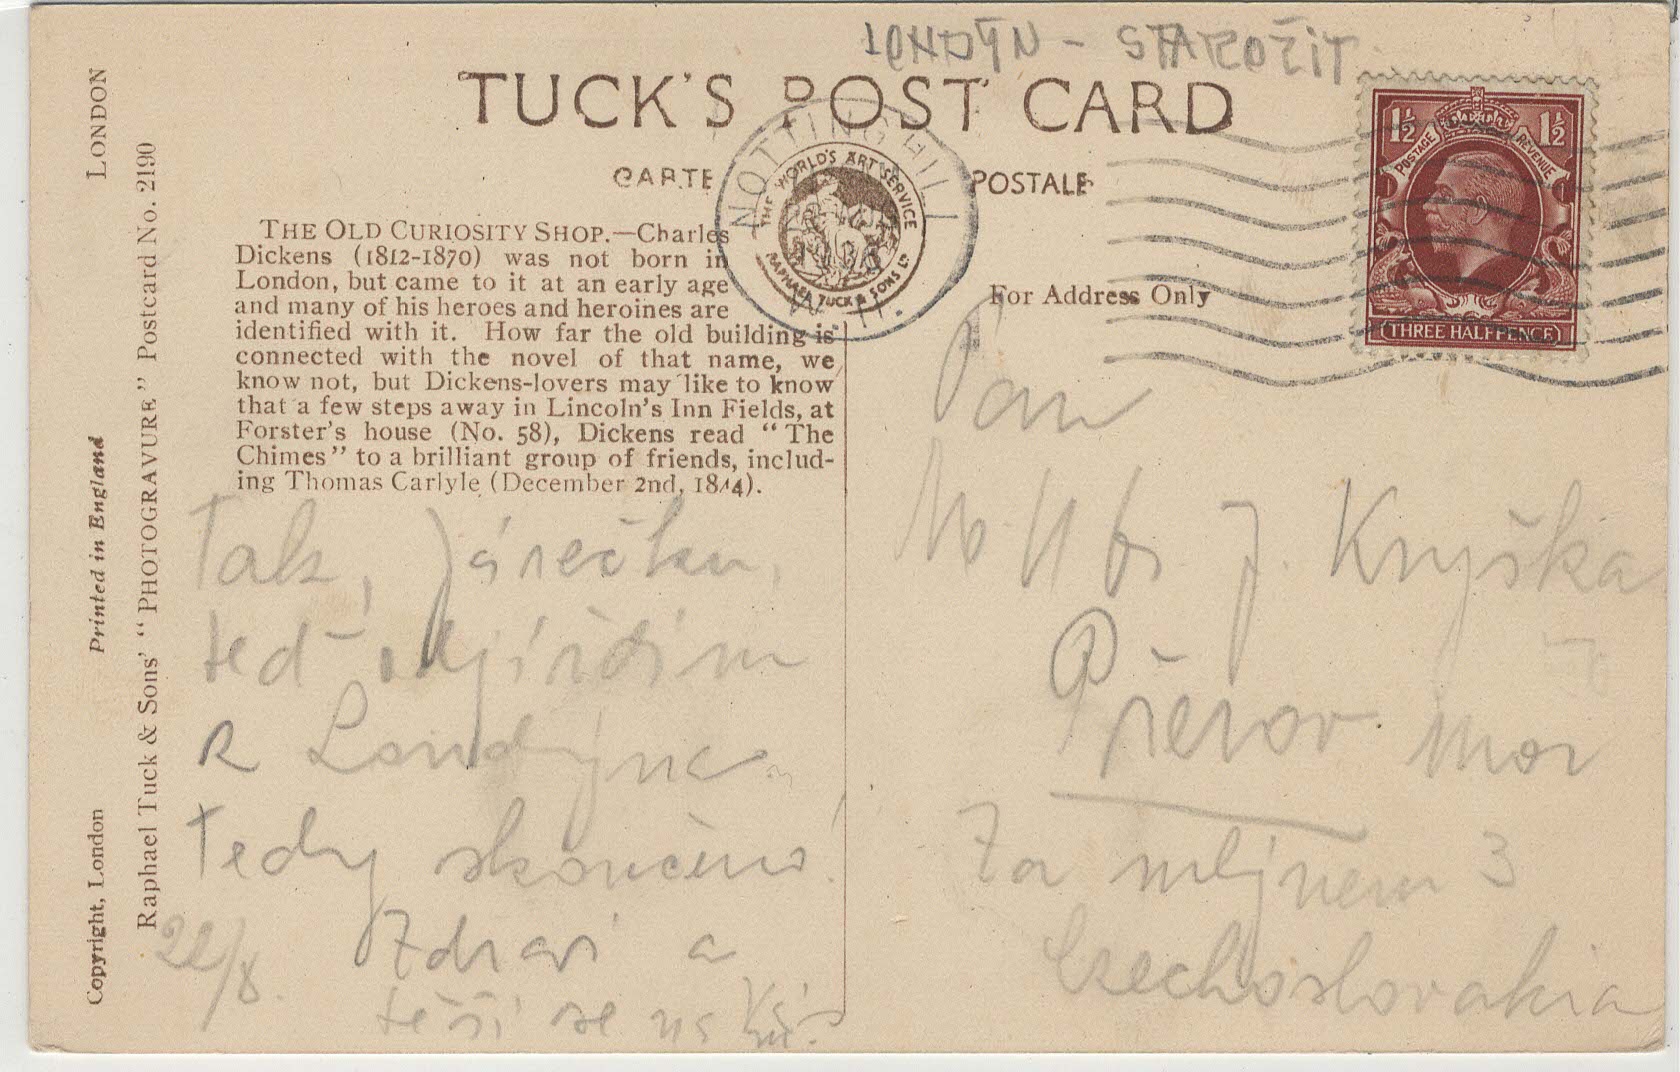 LONDÝN - STAROŽIT
TUCK'S POST CARD
CARTE POSTALE
NOTTING HILL
W. 11.
THE WORLD'S ART SERVICE
RAPHAEL TUCK & SONS LD
1½ 1½
POSTAGE REVENUE
THREE HALFPENCE
For Address Only
THE OLD CURIOSITY SHOP.—Charles
Dickens (1812-1870) was not born in
London, but came to it at an early age
and many of his heroes and heroines are
identified with it. How far the old building is
connected with the novel of that name, we
know not, but Dickens-lovers may like to know
that a few steps away in Lincoln's Inn Fields, at
Forster's house (No. 58), Dickens read "The
Chimes" to a brilliant group of friends, includ-
ing Thomas Carlyle (December 2nd, 1844).
Tak, Járečku,
teď odjíždím
z Londýna.
Tedy skončeno!
22/8. Zdraví a
těší se na
Pan
J. Kryška
Přerov Mor
Za mlýnem 3
Czechoslovakia
LONDON
Raphael Tuck & Sons' "PHOTOGRAVURE" Postcard No. 2190
Copyright, London Printed in England